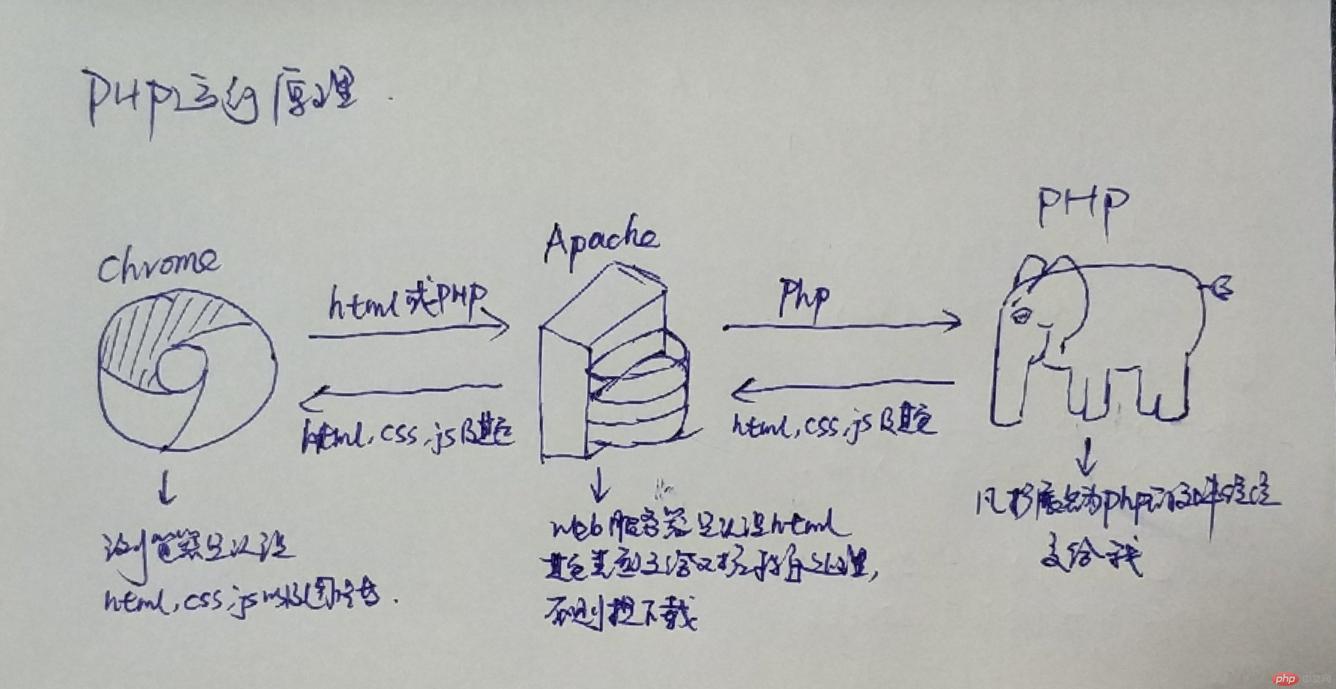 PHP运行原理.
PHP
Apache
Chrome
html或PHP
Php
html,css,js及其它
html,css,js及其它
浏览器只认识
html,css,js以及图片等.
web服务器只认识html
其它类型交给对应程序处理,
否则提示下载
凡扩展名为php的文件
交给我
php中文网